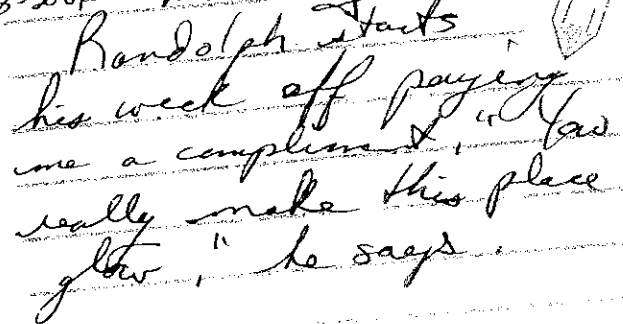 Randolph starts
his week off paying
me a compliment, "You
really make this place
glow," he says.